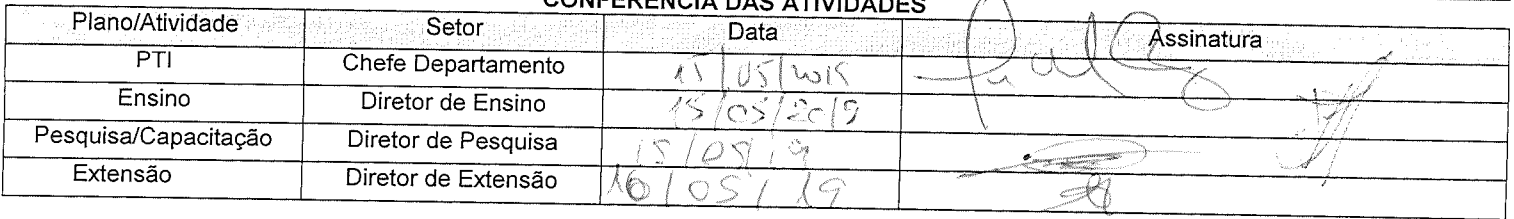 CONFERÊNCIA DAS ATIVIDADES
Plano/Atividade Setor Data Assinatura
PTI Chefe Departamento 15/05/2015
Ensino Diretor de Ensino 15/05/2019
Pesquisa/Capacitação Diretor de Pesquisa 15/05/19
Extensão Diretor de Extensão 16/05/19